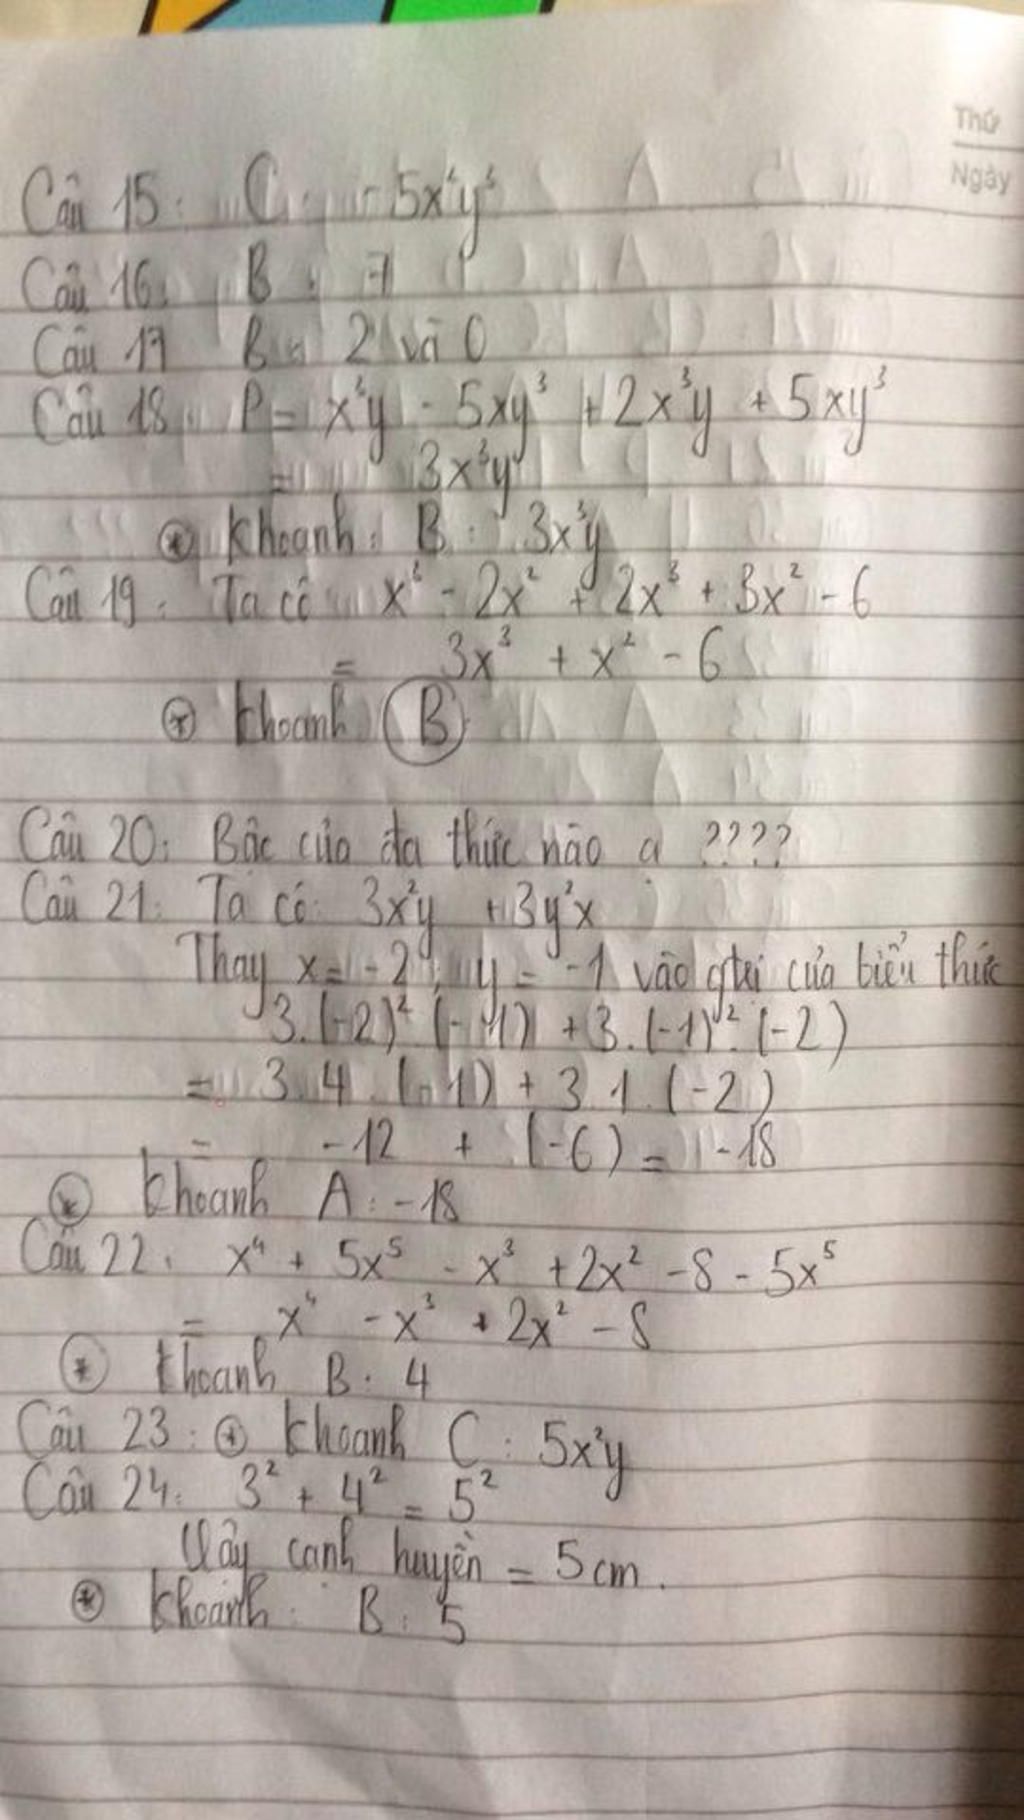 Thứ
Ngày
Câu 15: C: -5x⁴y³
Câu 16: B: 7
Câu 17 B: 2 và 0
Câu 18: P = x³y - 5xy³ + 2x³y + 5xy³
= 3x³y
⊛ Khoanh: B: 3x³y
Câu 19: Ta có x³ - 2x² + 2x³ + 3x² - 6
= 3x³ + x² - 6
⊛ Khoanh B
Câu 20: Bậc của đa thức nào ạ ????
Câu 21: Ta có: 3x²y + 3y²x
Thay x = -2; y = -1 vào gtri của biểu thức
3.(-2)² (-1) + 3.(-1)².(-2)
= 3.4.(-1) + 3.1.(-2)
= -12 + (-6) = -18
⊛ Khoanh A: -18
Câu 22: x⁴ + 5x⁵ - x³ + 2x² - 8 - 5x⁵
= x⁴ - x³ + 2x² - 8
⊛ Khoanh B: 4
Câu 23: ⊛ Khoanh C: 5x²y
Câu 24: 3² + 4² = 5²
Vậy cạnh huyền = 5cm.
⊛ Khoanh: B: 5